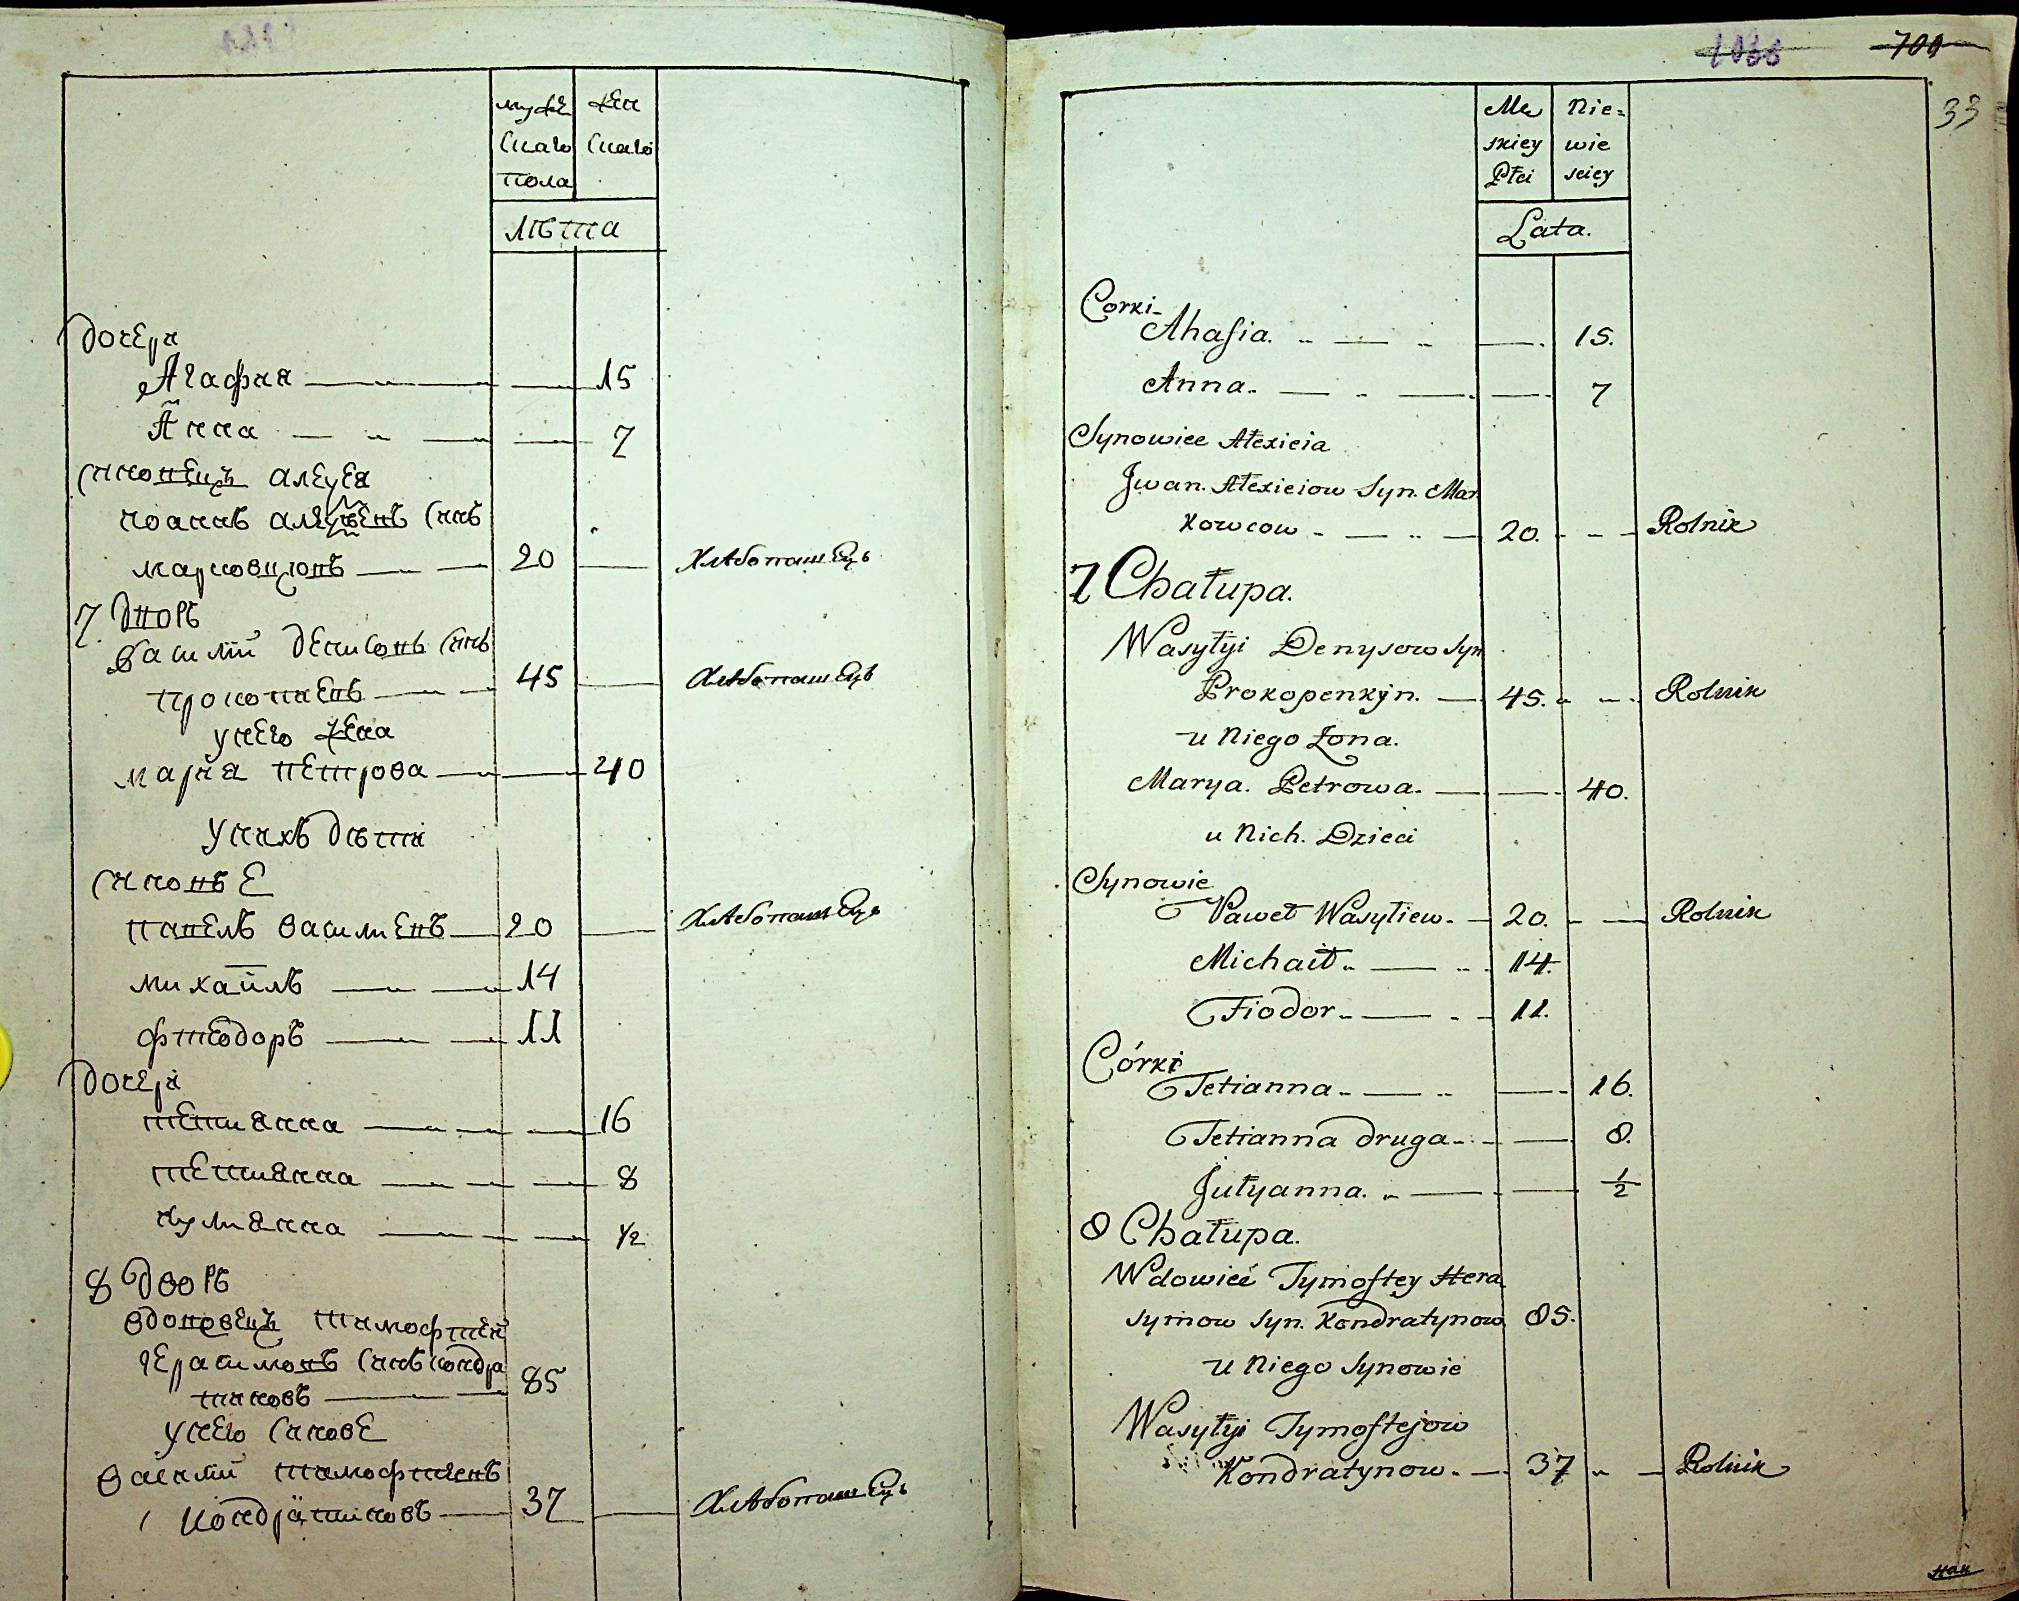 муже жен
скаго скаго
пола
лѣта
дочери
Агафия 15
Анна 7
синовецъ алеѯея
иоаннъ алеѯѣевъ синъ
марковцювъ 20 Хлѣбопашецъ
7 дворъ
василий денисовъ синъ
прокопиевъ 45 Хлѣбопашецъ
у него жена
мария петрова 40
у нихъ дѣти
синовье
павелъ василиевъ 20 Хлѣбопашецъ
михаилъ 14
фтеодоръ 11
дочери
тетиянна 16
тетиянна 8
иулиянна 1/2
8 дворъ
вдовецъ тимофтей
герасимовъ синъ кондра
тиновъ 85
у него синове
василий тимофтиевъ
кондратиновъ 37 Хлѣбопашецъ
1088 700
33
Mę Nie=
skiey wie
Płci sciey
Lata.
Corki
Ahafia. 15.
Anna. 7
Synowiec Ałexieia
Jwan. Ałexieiow Syn. Mar
kowcow 20. Rolnik
7 Chałupa.
Wasyłyi Denysow Syn
Prokopenkyn. 45. Rolnik
u Niego Żona.
Marya. Petrowa. 40.
u Nich. Dzieci
Synowie
Paweł Wasyliew. 20. Rolnik
Michaił 14.
Fiodor 11.
Córki
Tetianna 16.
Tetianna druga 8.
Jułyanna. 1/2
8 Chałupa.
Wdowiec Tymoftey Hera
symow Syn. Kondratynow 85.
u Niego Synowie
Wasyłyi Tymoftejow
Kondratynow. 37 Rolnik